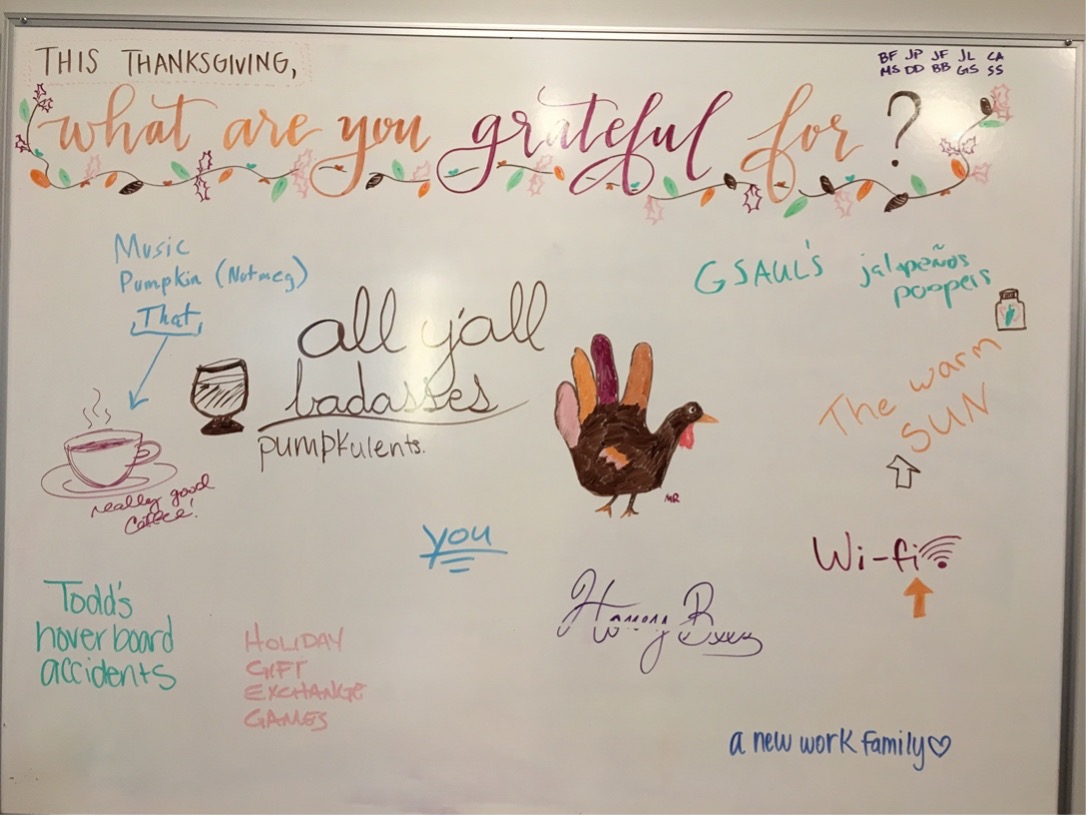 THIS THANKSGIVING,
BF JP JF JL CA
MS DD BB GS SS
what are you grateful for?
Music
Pumpkin (Nutmeg)
That
GSAUL'S jalapeños
poopers
all y'all
badasses
pumpkulents.
The warm
SUN
really good
Coffee!
MR
you
Wi-fi
Todd's
hoverboard
accidents
HOLIDAY
GIFT
EXCHANGE
GAMES
a new work family